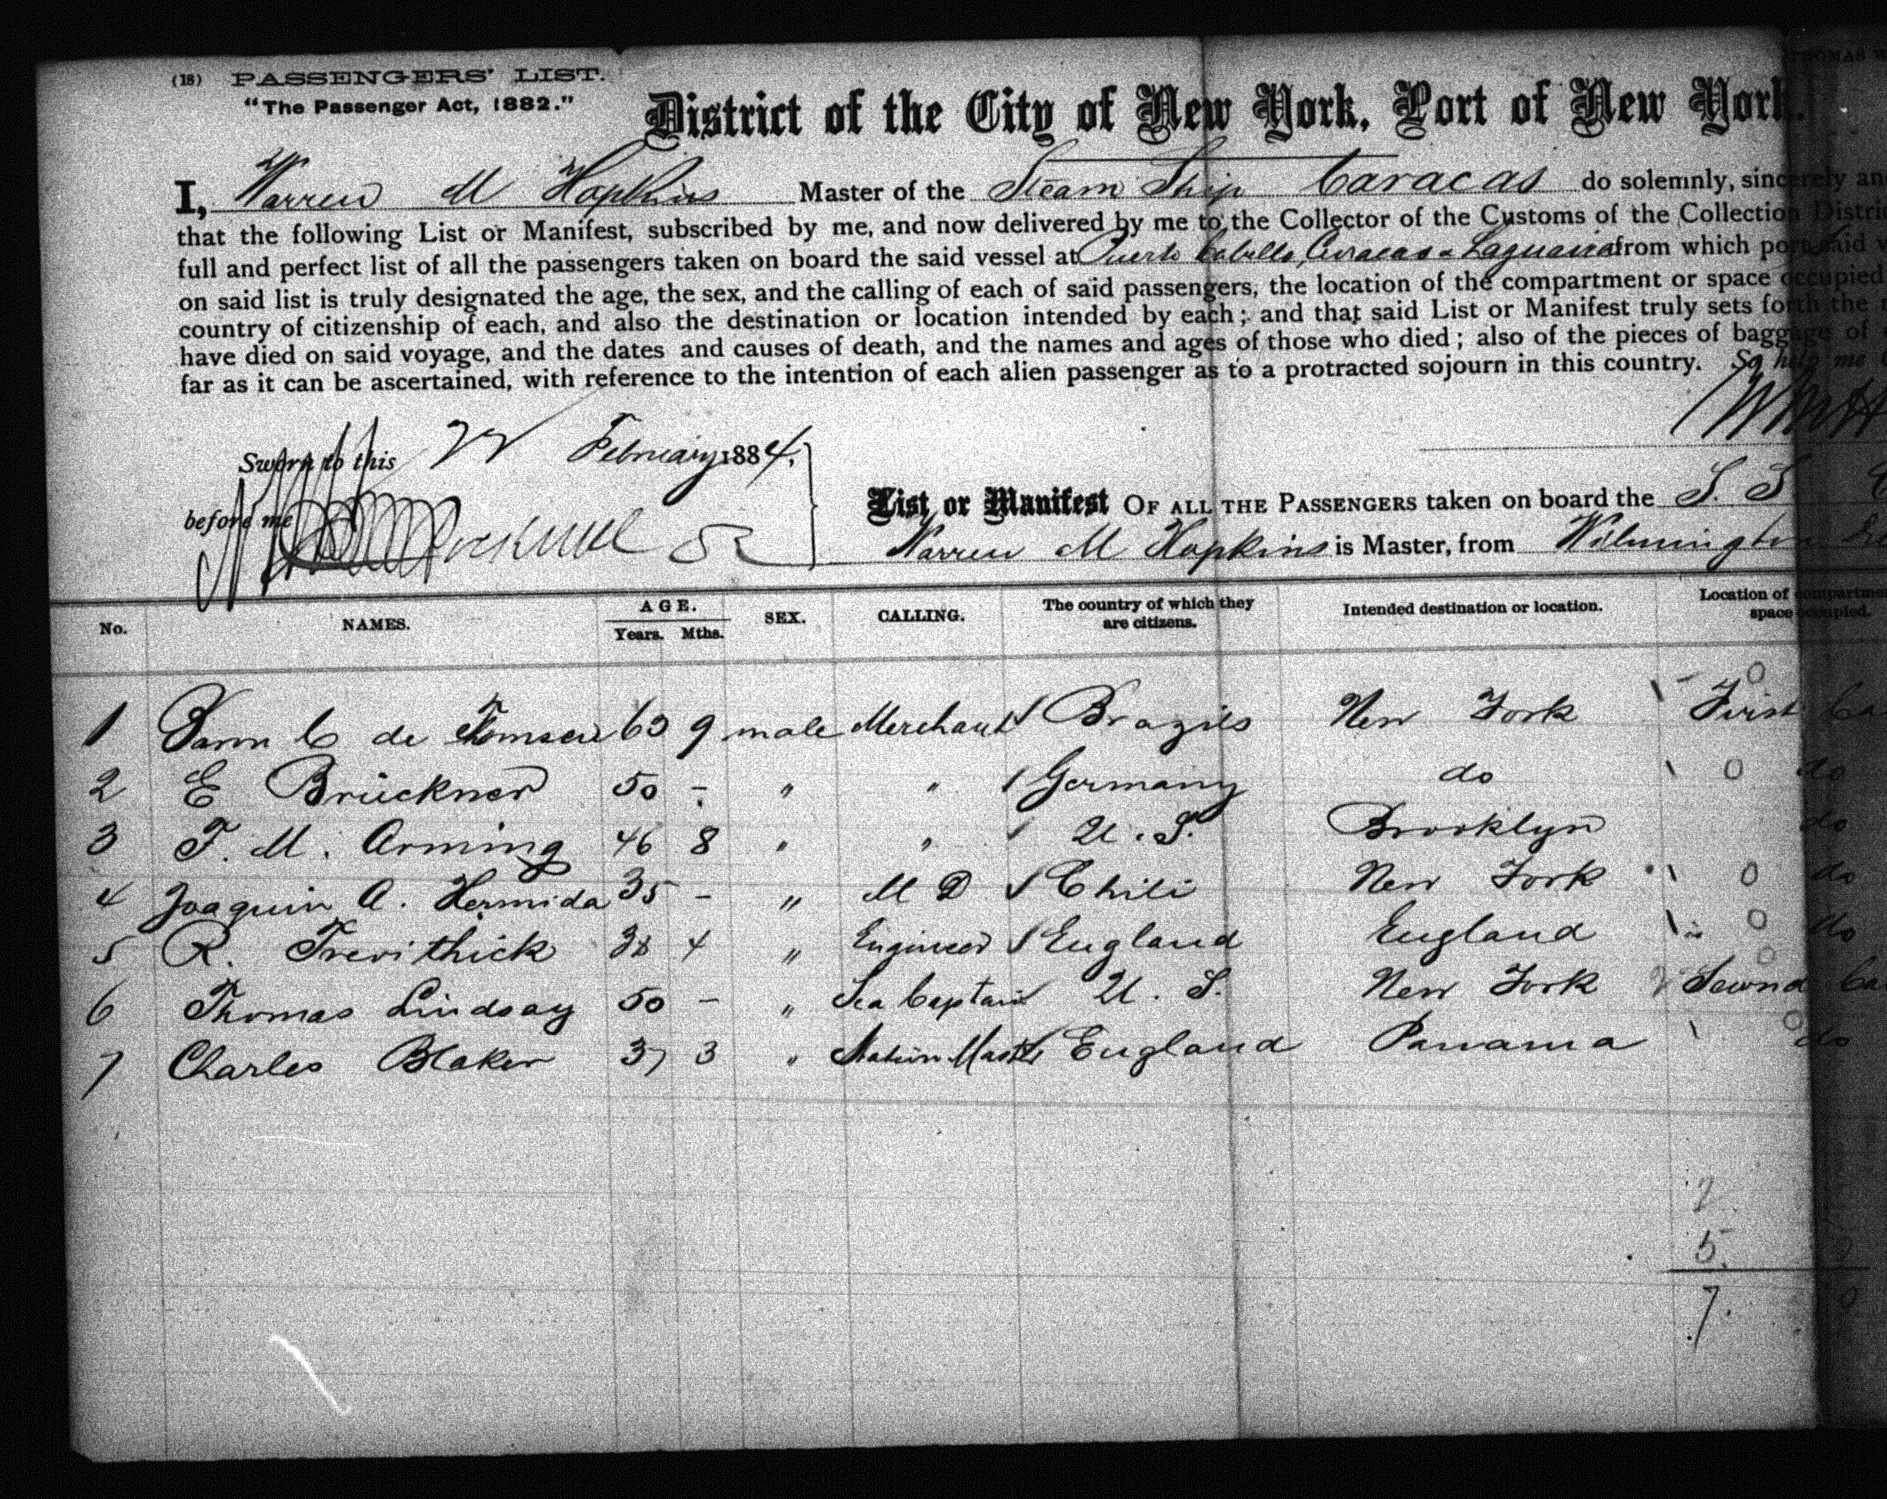 (18) PASSENGERS' LIST.
"The Passenger Act, 1882."
District of the City of New York, Port of New York.
I, Warren M Hopkins Master of the Steam Ship Caracas do solemnly, sincerely and
that the following List or Manifest, subscribed by me, and now delivered by me to the Collector of the Customs of the Collection District
full and perfect list of all the passengers taken on board the said vessel at Puerto Cabello, Curacao & Laguaira from which port said
on said list is truly designated the age, the sex, and the calling of each of said passengers, the location of the compartment or space occupied
country of citizenship of each, and also the destination or location intended by each; and that said List or Manifest truly sets forth the
have died on said voyage, and the dates and causes of death, and the names and ages of those who died; also of the pieces of baggage of
far as it can be ascertained, with reference to the intention of each alien passenger as to a protracted sojourn in this country. So help me
Sworn to this 22 February 1884,
before me
List or Manifest OF ALL THE PASSENGERS taken on board the S. S.
Warren M Hopkins is Master, from Wilmington
No. NAMES. AGE. Years. Mths. SEX. CALLING. The country of which they are citizens. Intended destination or location. Location of compartment space occupied.
1 C de 63 9 male Merchant Brazils New York First
2 E Brückner 50 - " " Germany do do
3 F. M. Arming 46 8 " " U. S. Brooklyn do
4 Joaquin A. Hermida 35 - " M D Chili New York do
5 R. Trevithick 38 4 " Engineer England England do
6 Thomas Lindsay 50 - " Sea Captain U. S. New York Second
7 Charles Blaker 37 3 " Station Master England Panama do
2
5.
7.